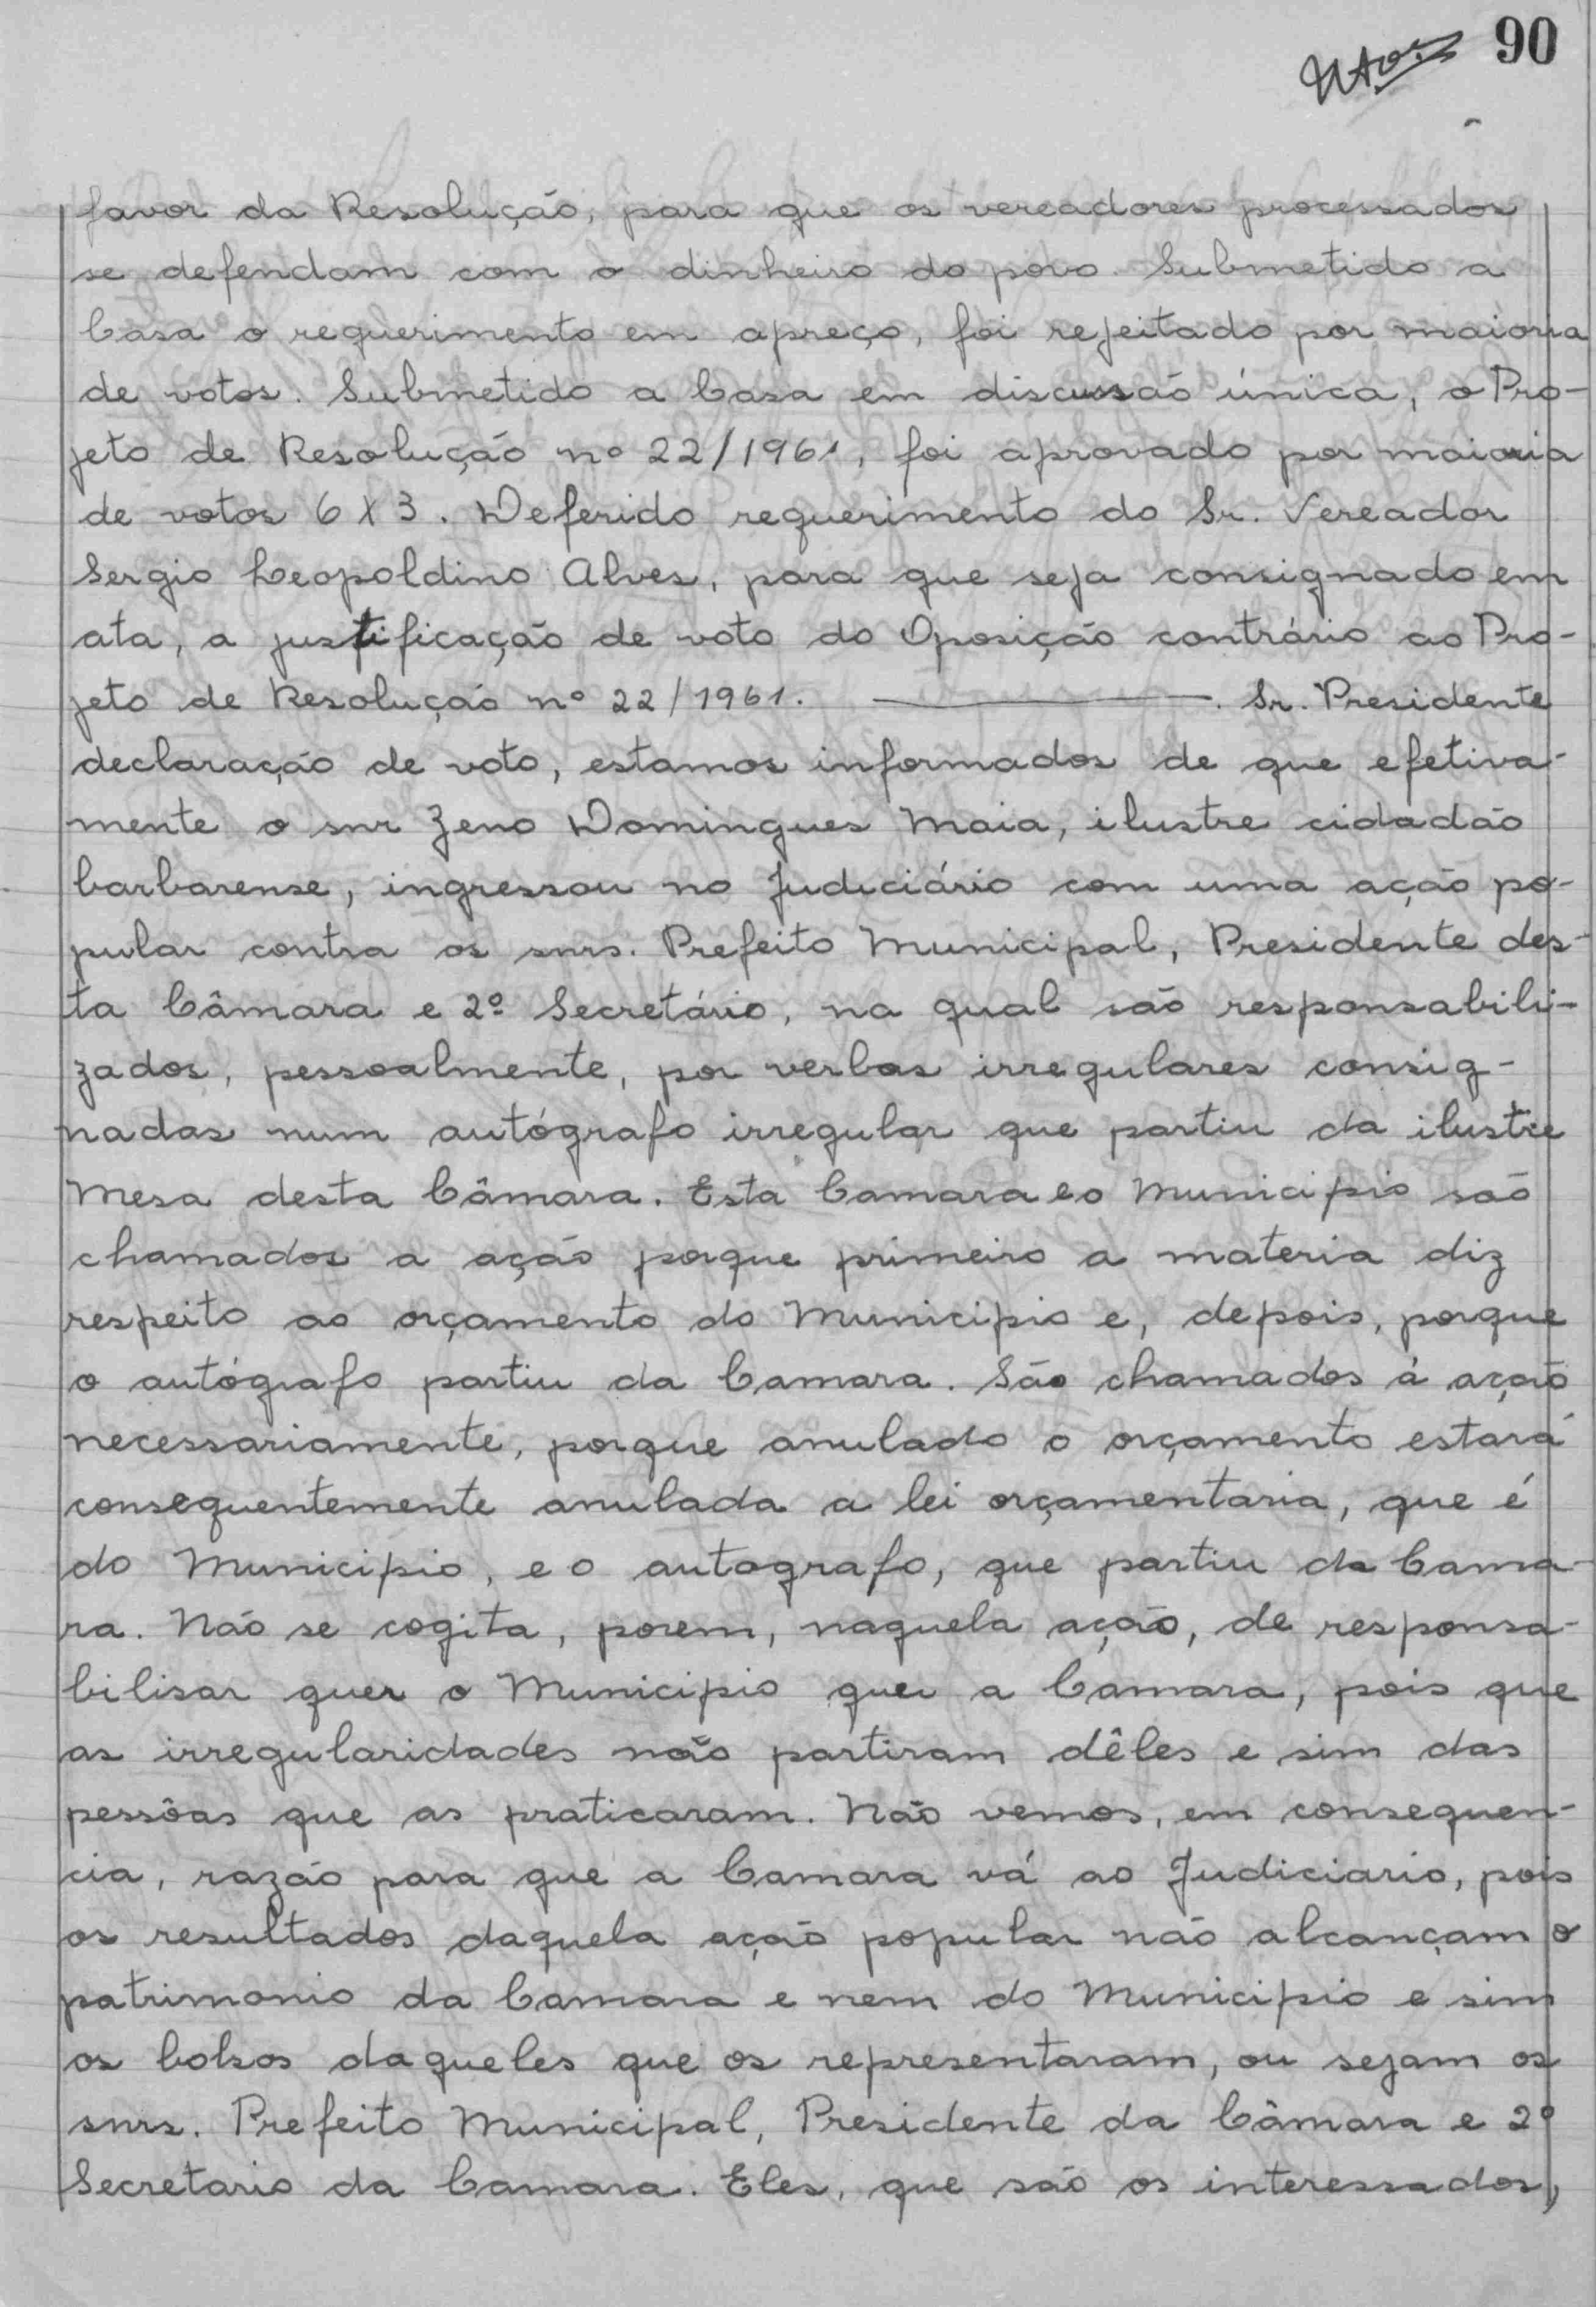 90
favor da Resolução, para que os vereadores processados
se defendam com o dinheiro do povo. Submetido a
Casa o requerimento em apreço, foi rejeitado por maioria
de votos. Submetido a Casa em discussão única, o Pro-
jeto de Resolução nº 22/1961, foi aprovado por maioria
de votos 6 X 3. Deferido requerimento do Sr. Vereador
Sergio Leopoldino Alves, para que seja consignado em
ata, a justificação de voto do Oposição contrário ao Pro-
jeto de Resolução nº 22/1961. ———. Sr. Presidente
declaração de voto, estamos informados de que efetiva-
mente o snr Zeno Domingues Maia, ilustre cidadão
barbarense, ingressou no Judiciário com uma ação po-
pular contra os snrs. Prefeito Municipal, Presidente des-
ta Câmara e 2º Secretário, na qual são responsabili-
zados, pessoalmente, por verbas irregulares consig-
nadas num autógrafo irregular que partiu da ilustre
Mesa desta Câmara. Esta Camara e o Municipio são
chamados a ação porque primeiro a materia diz
respeito ao orçamento do Municipio e, depois, porque
o autógrafo partiu da Camara. São chamados á ação
necessariamente, porque anulado o orçamento estará
consequentemente anulada a lei orçamentaria, que é
do Municipio, e o autografo, que partiu da Cama-
ra. Não se cogita, porem, naquela ação, de responsa-
bilisar quer o Municipio quer a Camara, pois que
as irregularidades não partiram dêles e sim das
pessôas que as praticaram. Não vemos, em consequen-
cia, razão para que a Camara vá ao Judiciario, pois
os resultados daquela ação popular não alcançam o
patrimonio da Camara e nem do Municipio e sim
os bolsos daqueles que os representaram, ou sejam os
snrs. Prefeito Municipal, Presidente da Câmara e 2º
Secretario da Camara. Eles, que são os interessados,